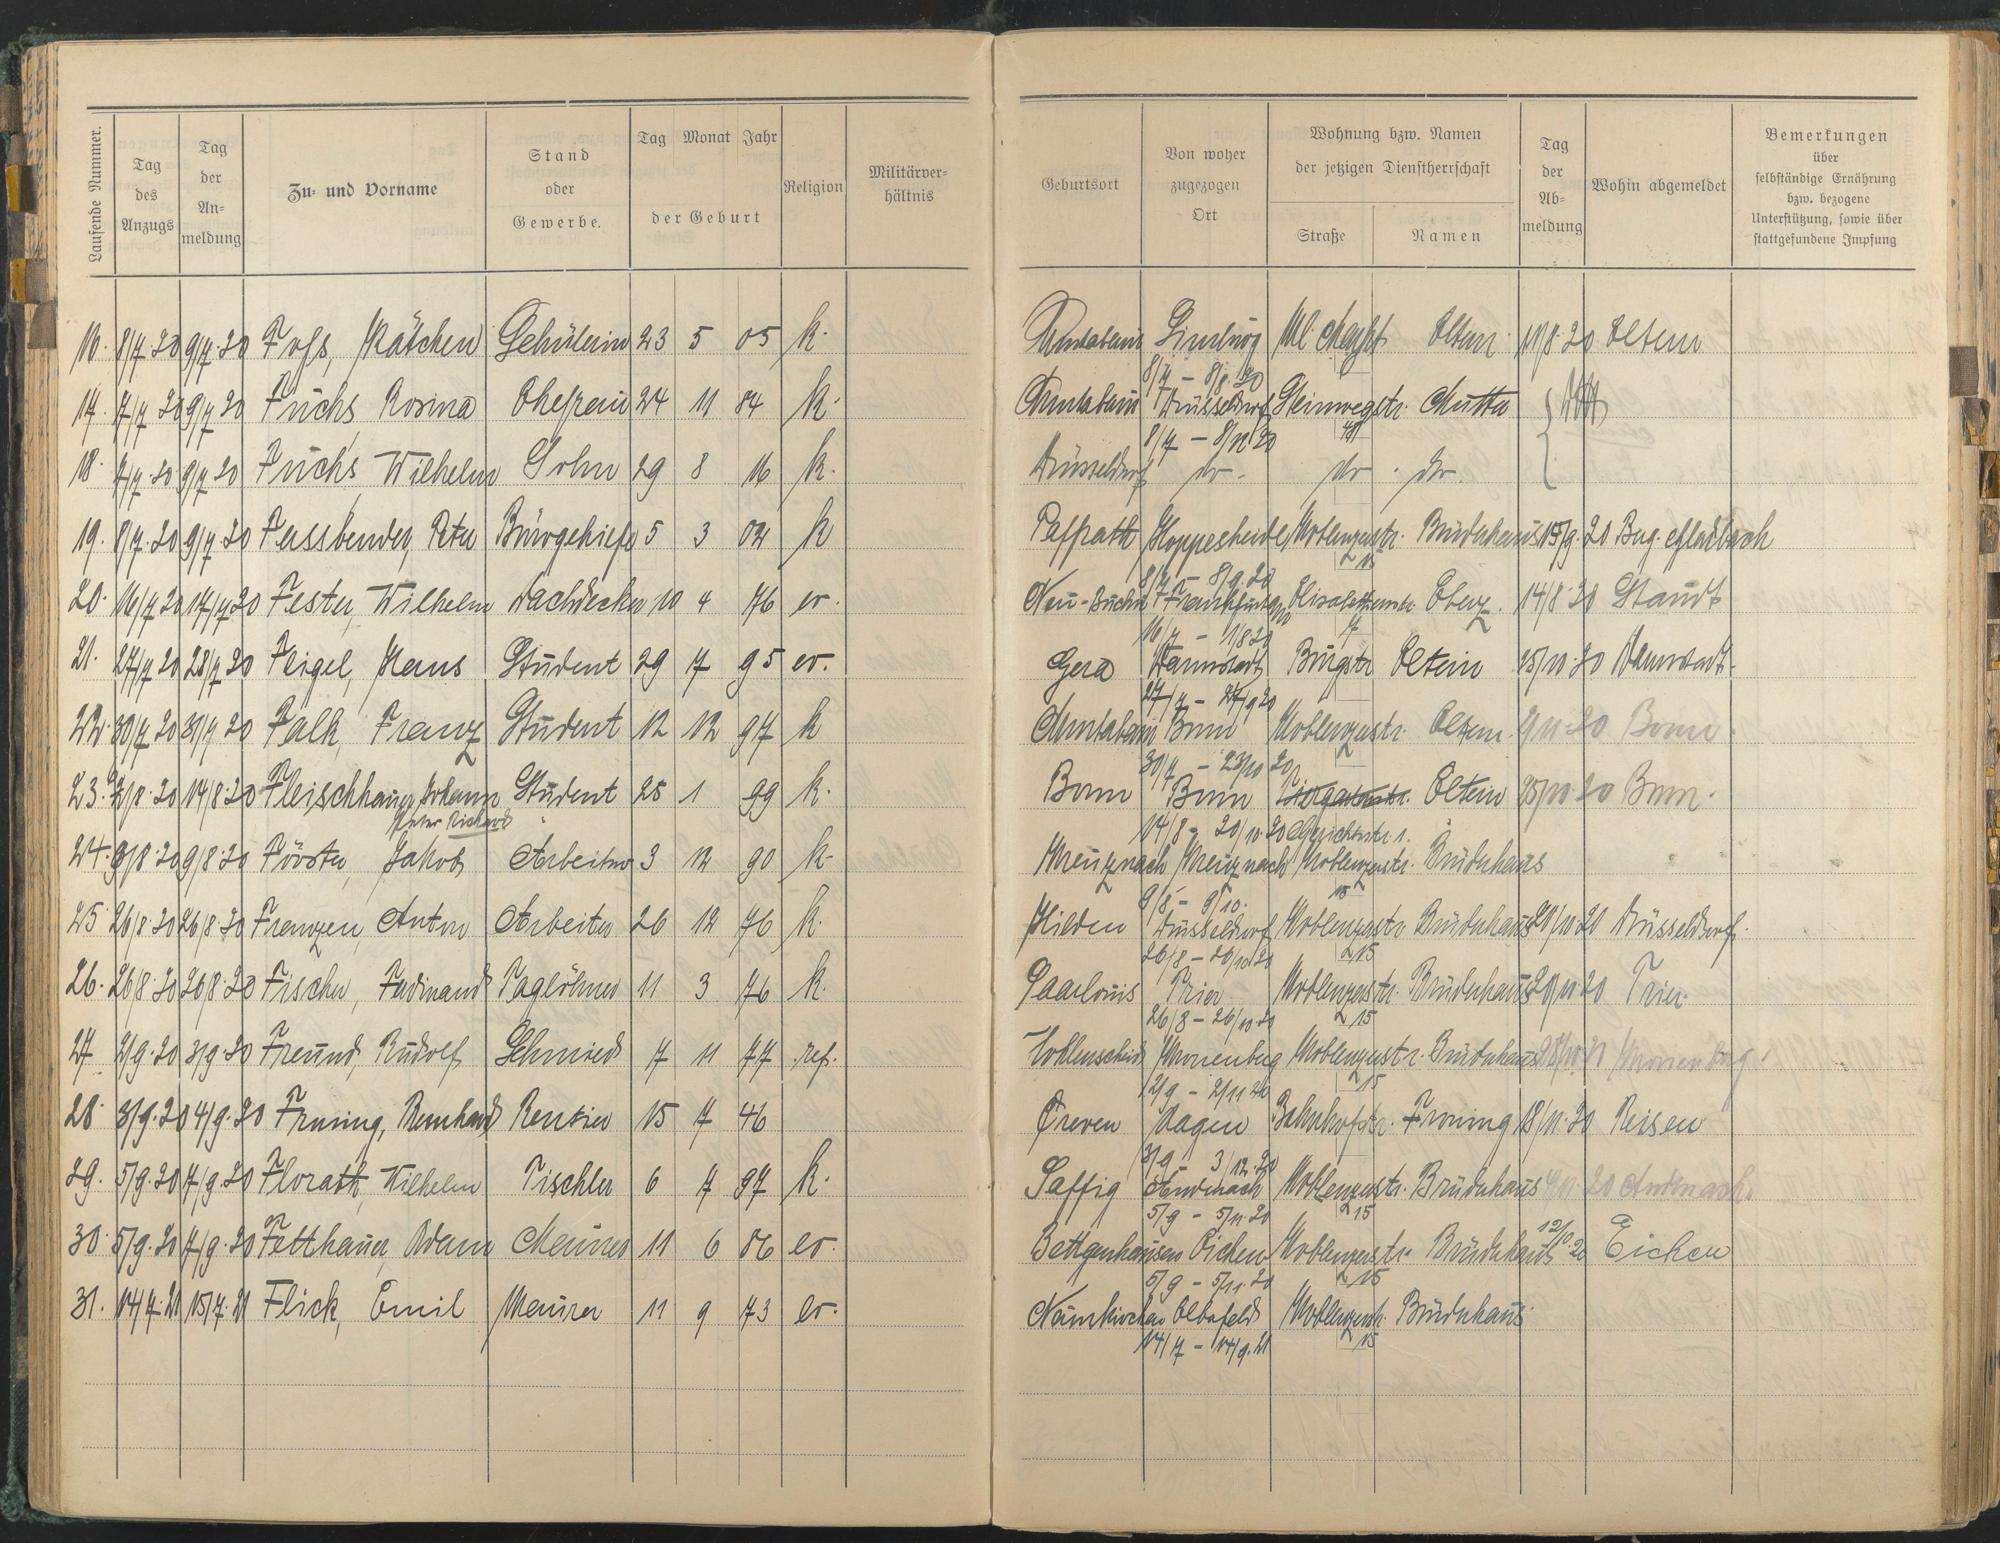 Laufende Nummer.
Tag des Anzugs
Tag der An-meldung
Zu- und Vorname
Stand oder Gewerbe.
Tag Monat Jahr
der Geburt
Religion
Militärver-hältnis
Geburtsort
Von woher zugezogen Ort
Wohnung bzw. Namen
der jetzigen Dienstherrschaft
Straße
Namen
Tag der Ab-meldung
Wohin abgemeldet
Bemerkungen
über
selbständige Ernährung
bzw. bezogene
Unterstützung, sowie über
stattgefundene Impfung
16. 8/7.20 9/7.20 Schülerin 23 5 05 k. Limburg Eltern 11/8.20 Eltern
8/7 - 8/8.20
17. 7/7.20 9/7.20 Fuchs Rosina Ehefrau 24 11 84 k. Düsseldorf Steinwegstr. Mutter
8/7 - 8/11 20
18. 7/7.20 9/7 20 Fuchs Wilhelm Sohn 29 8 16 k. Düsseldorf do. do. do.
19. 8/7.20 9/7.20 Fassbender, Peter Bürogehilfe 5 3 02 k Paffrath Koppescheide Koblenzerstr. Bruderhaus 15/9.20 Berg. Gladbach
15
8/7 - 8/9.20
20. 16/7 20 17/7 20 Fester, Wilhelm Dachdecker 10 4 76 ev. Elisabethenstr. 14/8.20 Staudt
16/7 - 1/8 20
21. 27/7 20 28/7 20 Feigel, Hans Student 29 7 95 ev. Gera Darmstadt Burgstr Eltern 25/10.20 Darmstadt.
27/7 - 27/9 20
22. 30/7 20 31/7 20 Falk, Franz Student 12 12 97 k Bonn Koblenzerstr. Eltern. 9/11.20 Bonn
30/7 - 23/10 20
23. 14/8.20 Fleischhauer, Johann Student 25 1 99 k. Bonn Bonn Eltern 25/10.20 Bonn.
Peter Richard
14/8 - 20/10.20 Gerichtstr. 1.
24. 9/8.20 9/8.20 Förster, Jakob Arbeiter 3 12 90 k. Kreuznach Kreuznach Koblenzerstr. Bruderhaus
15
9/8 - 9/10.
25 26/8.20 26/8.20 Franzen, Anton Arbeiter 26 12 76 k. Hilden Düsseldorf Koblenzerstr Bruderhaus 20/10 20 Düsseldorf.
15
26/8 - 26/10 20
26. 26/8.20 26/8.20 Fischer, Ferdinand Taglöhner 11 3 76 k. Saarlouis Trier Koblenzerstr. Bruderhaus 20/10.20 Trier.
15
26/8 - 26/10 20
27 2/9.20 3/9.20 Freund, Rudolf Schmied 7 11 77 ref. Kronenberg Koblenzerstr. Bruderhaus Kronenberg.
15
2/9 - 2/11 20
28 3/9.20 4/9.20 Froning, Bernhard Rentier 15 7 46 Greven Hagen Bahnhofstr. Froning 18/11.20 Reisen
3/9 - 3/12.20
29. 5/9.20 7/9.20 Florath, Wilhelm Tischler 6 7 97 k. Saffig Andernach Koblenzerstr. Bruderhaus Andernach.
15
5/9 - 5/11.20
30. 5/9.20 7/9.20 Fetthauer, Adam Maurer 11 6 86 ev. Bettgenhausen Eichen Koblenzerstr. Bruderhaus 20 Eichen
15
5/9 - 5/11.20
31. 14/7.21 15/7.21 Flick, Emil Maurer 11 9 73 ev. Neunkirchen Elberfeld Koblenzerstr. Bruderhaus
15
14/7 - 14/9.21